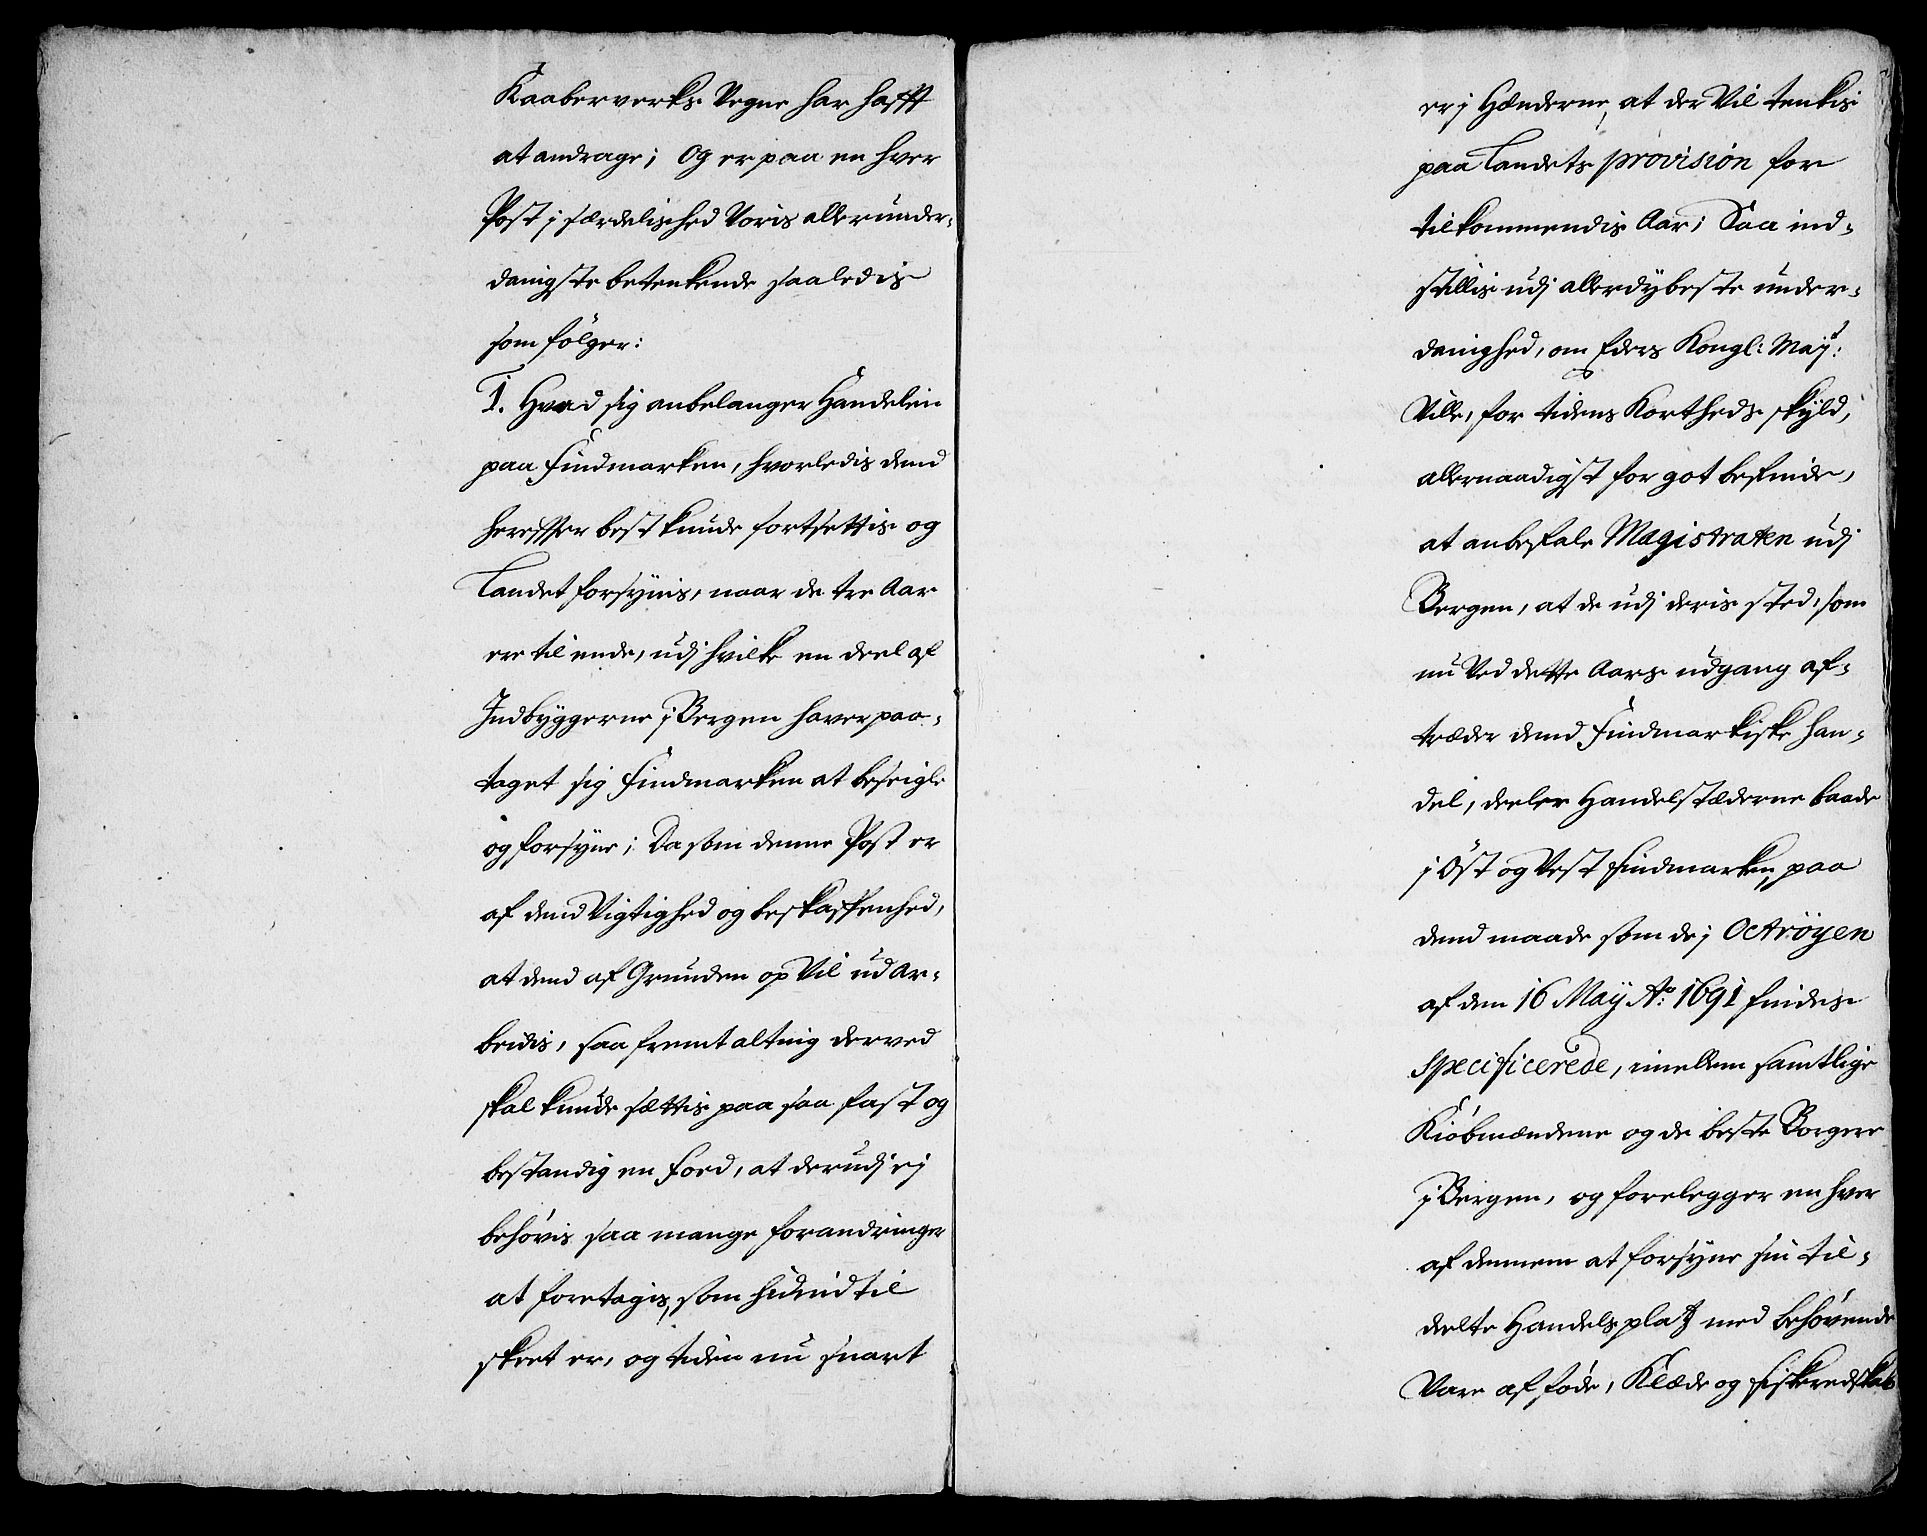 Kaaberverks Vegne har hafft
at andrage; Og er paa en hver
Post j særdelished Voris allerunder-
danigste betenkende saaledis
som følger:
1. Hvad sig anbelanger Handelen
paa Findmarken, hvorledis dend
hereffter best kunde fortsettis og
Landet forsÿnis, naar de tre Aar
ere til ende, udj hvilke en deel af
Indbÿggerne j Bergen haver paa-
taget sig Findmarken at beseigle
og forsÿne; Da som denne Post er
af dend Vigtighed og beskaffenhed,
at dend af Grunden op Vil udar-
beidis, saa fremt alting derved
skal kunde sættis paa saa fast og
bestandig en Foed, at derudj ej
behøvis saa mange forandringer
at foretagis, som hidind til
skeet er, og tiden nu snart
er j Hænderne, at der Vil tenkis
paa Landets provision for
tilkommendis Aar; Saa ind-
stillis udj allerdÿbeste under-
danighed, om Eders Kongl: Maÿt:
Ville, for tidens Kortheds skÿld,
allernaadigst for got befinde,
at anbefale Magistraten udj
Bergen, at de udj deris sted, som
nu Ved dette Aars udgang af-
træder dend Findmarkiske han-
del, deeler Handelstæderne baade
j Øst og Vest Findmarken, paa
dend maade som de j Octrøyen
af den 16 Maÿ Ao: 1691 findes
specificerede, imellem samtlige
Kiøbmændene og de beste Borgere
j Bergen, og forelegger en hver
af dennem at forsÿne sin til-
deelte Handels platz med behøvende
Vare af føde, Klæde og fiskeredskab